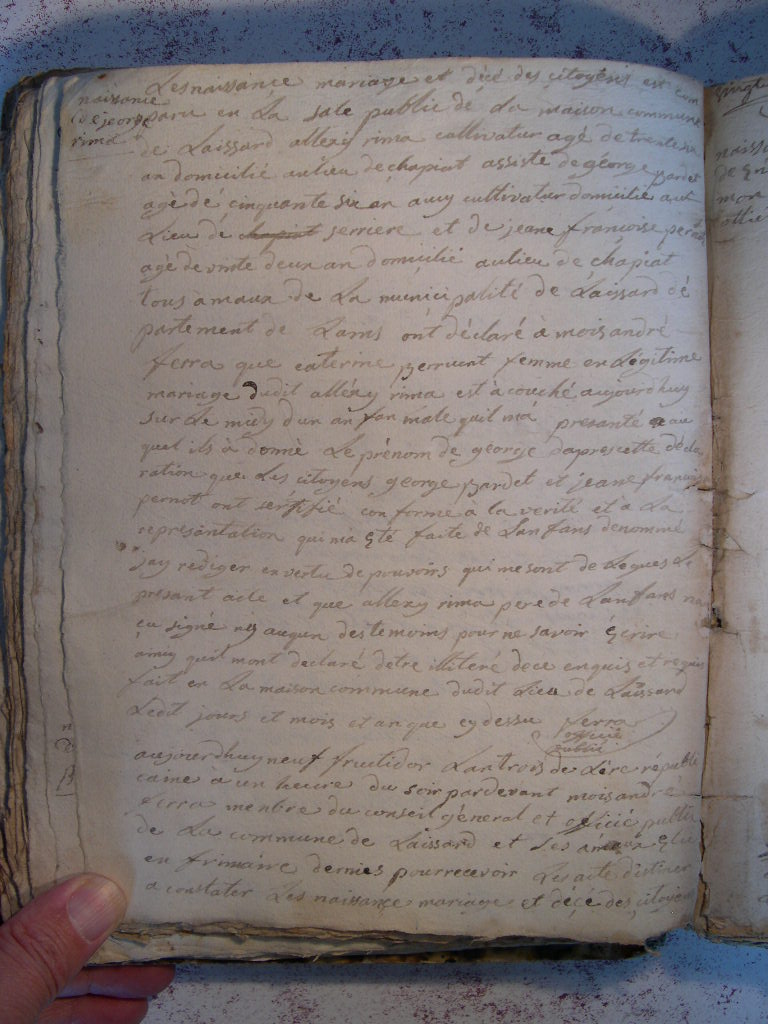 naissance
de george
rima
Les naissance mariage et décé des citoyens est com
paru en La sale public dé La maison commune
de Laissard allexy rima cultivatur agé de trente six
an domicilié au lieu de chapiat assisté de george pardet
agé dé cinquante six an auy cultivatur domicilié aut
Lieu dé chapiat serriere et de jeane françoise pernot
agé de vinte deux an domicilié au lieu de chapiat
tous a maux de La municipalité de Laissard dé
partement de Lains ont déclaré à mois andré
ferra que caterine perruent femme en Légitime
mariage dudit alléxy rima est à couché aujourdhuy
sur Le midy dun an fan male quil ma presanté au
quel ils à domé Le prénom de george dapres cette décla
ration que Les citoyens george pardet et jeane françoise
pernot ont sértifié conforme a la verité et a La
représentation qui ma été faite de Lanfans denommé
jay rediger en vertu de pouvoirs qui me sont de Legues Le
présant acte et que allexy rima pere de Lanfans na
eu signé ny augun des temoins pour ne savoir Ecrire
amy quil mont declaré detre illiteré de ce enquis et requis
fait en La maison commune dudit Lieu de Laissard
Ledit jours et mois et an que cy dessu ferra
officié
public
aujourdhuy neuf fructidor Lan trois de Lére républi
caine a un heure du soir pardevant mois andré
ferra menbre du conseil géneral et officié public
de La commune de Laissard et Les ameux Elu
en frimaire dernies pour recevoir Les acte distiner
a constater Les naissance mariage et décé des citoyens